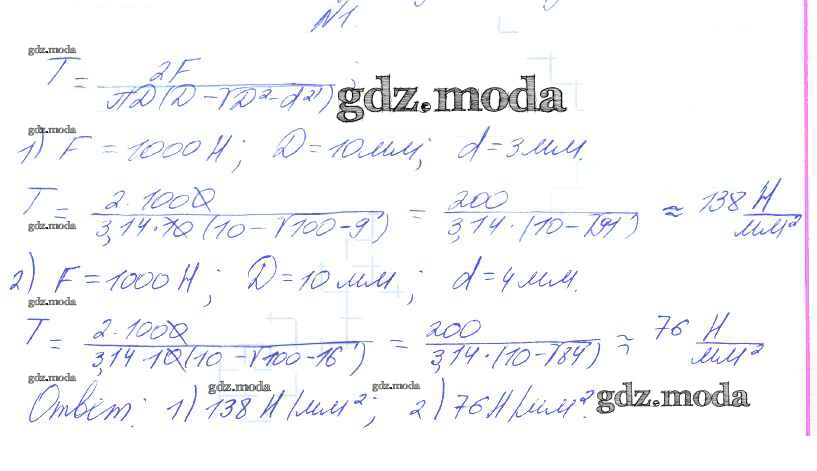 №1.
gdz.moda
T = 2F / πD(D - √D² - d²) ;
gdz.moda
gdz.moda
1) F = 1000 Н; D = 10 мм; d = 3 мм.
T = 2·1000 / 3,14·10(10 - √100 - 9) = 200 / 3,14·(10 - √91) ≈ 138 Н/мм²
gdz.moda
2) F = 1000 Н; D = 10 мм; d = 4 мм.
gdz.moda
T = 2·1000 / 3,14·10(10 - √100 - 16) = 200 / 3,14·(10 - √84) ≈ 76 Н/мм²
gdz.moda
gdz.moda
gdz.moda
Ответ: 1) 138 Н/мм²; 2) 76 Н/мм².
gdz.moda